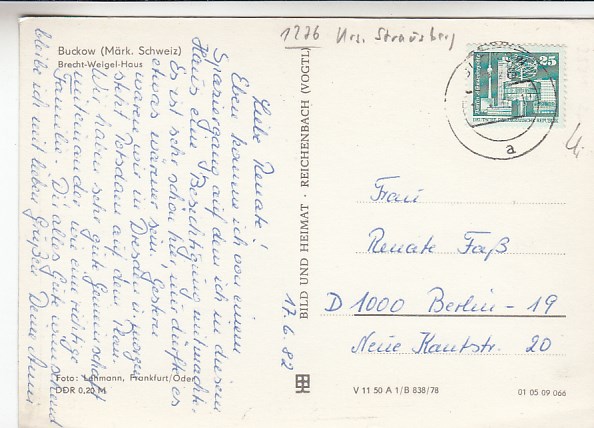 1276 Krs. Strausberg
Buckow (Märk. Schweiz)
Brecht-Weigel-Haus
25
DEUTSCHE DEMOKRATISCHE REPUBLIK
a
Liebe Renate!
Eben komme ich von einem
Spaziergang auf dem ich in diesem
Haus eine Besichtigung mitmachte.
Es ist sehr schön hier, nur dürfte es
etwas wärmer sein. Gestern
waren wir in Dresden u. morgen
steht Potsdam auf dem Plan.
Wir haben sehr gute Gemeinschaft
untereinander wie eine richtige
Familie. Dir alles Gute wünschend
bleibe ich mit lieben Grüßen Deine Anni
17.6.82
BILD UND HEIMAT · REICHENBACH (VOGTL)
Frau
Renate Faß
D 1000 Berlin - 19
Neue Kantstr. 20
Foto: Lehmann, Frankfurt/Oder
DDR 0,20 M
V 11 50 A 1/B 838/78
01 05 09 066